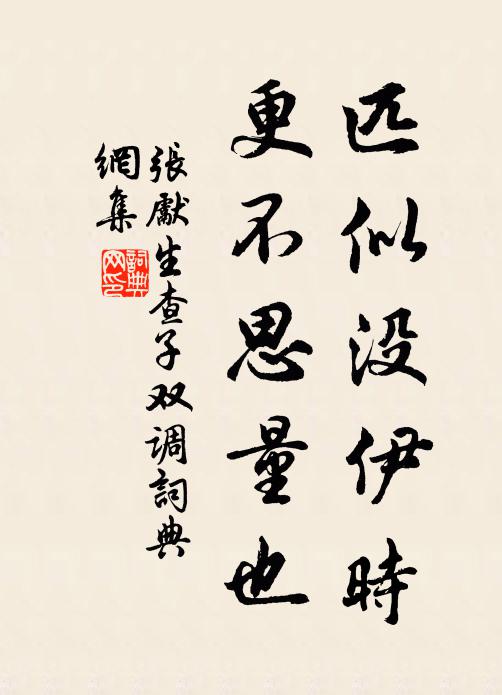 匹似没伊時
更不思量也
張獻生查子双调詞典
網集
詞典网印